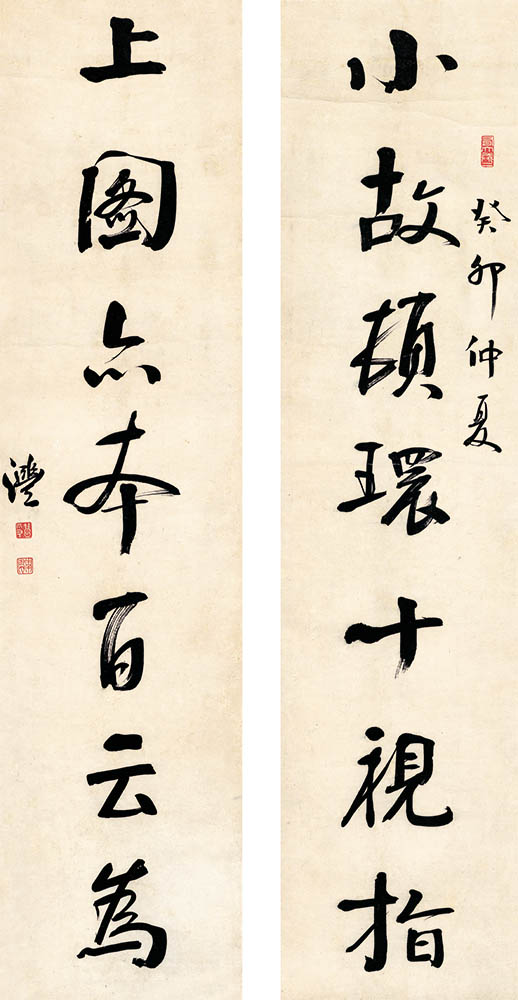 癸卯仲夏
小故環十視指
上圖亦本百云為
灃